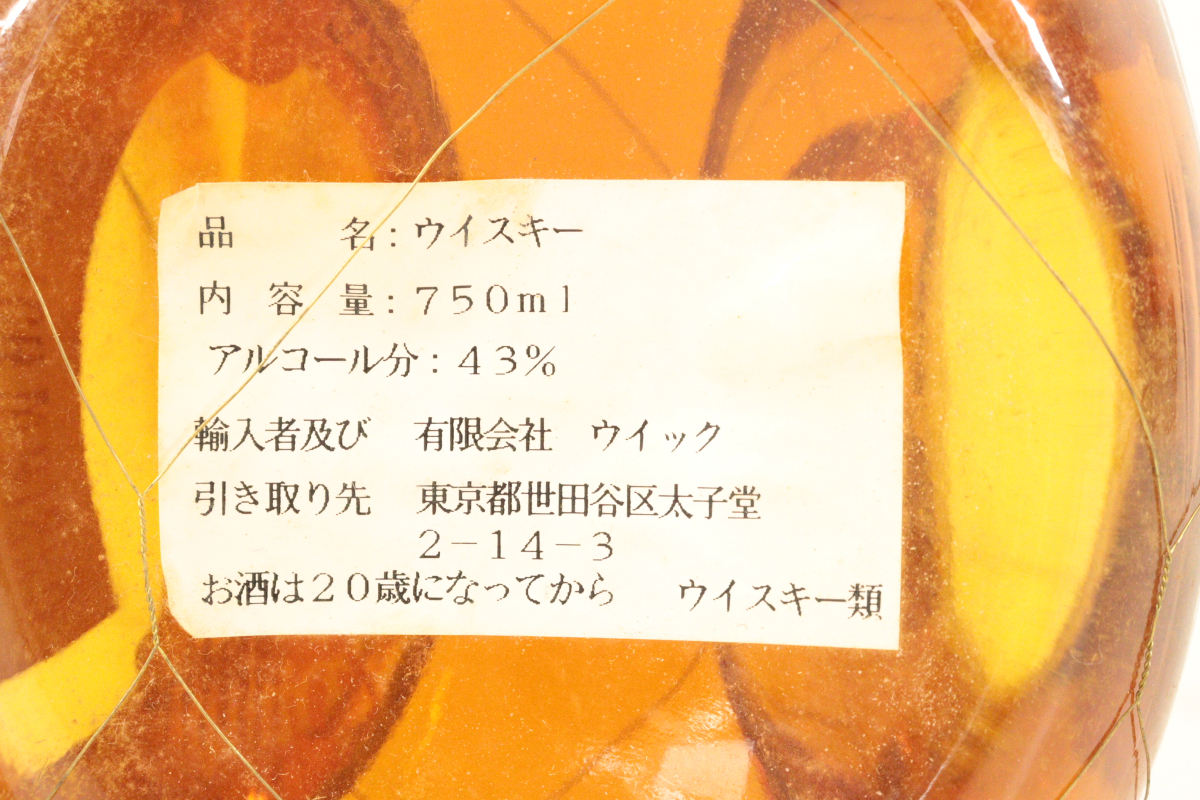 品　　　名：ウイスキー
内　容　量：７５０ｍｌ
アルコール分：４３％
輸入者及び　有限会社　ウイック
引き取り先　東京都世田谷区太子堂
２－１４－３
お酒は２０歳になってから　ウイスキー類